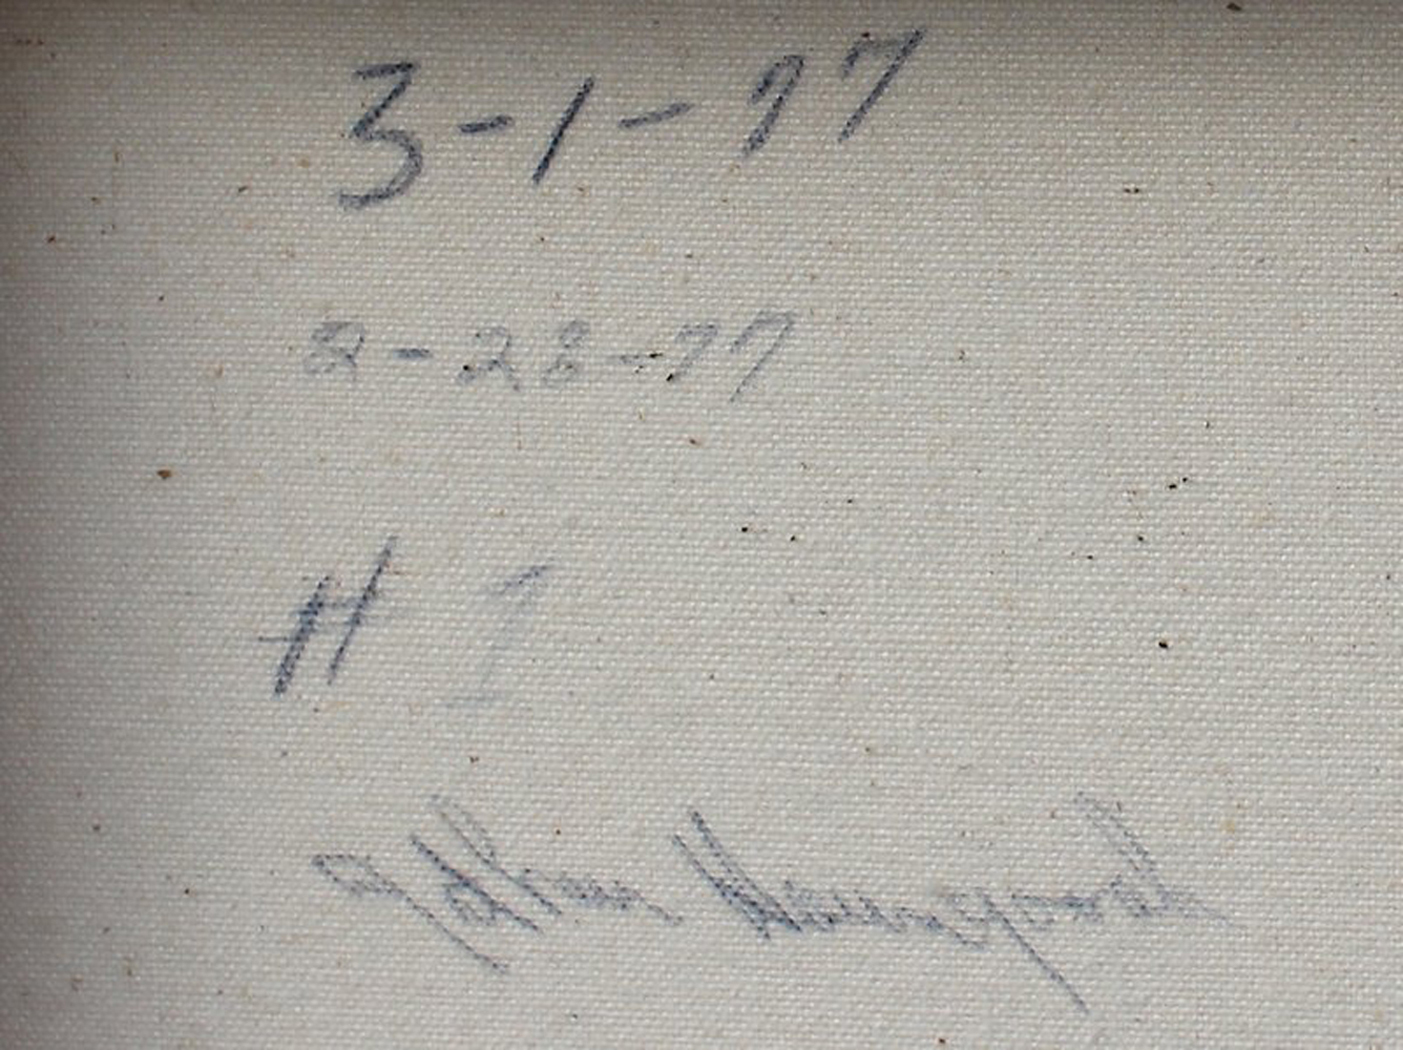 3-1-77
2-28-77
# 1